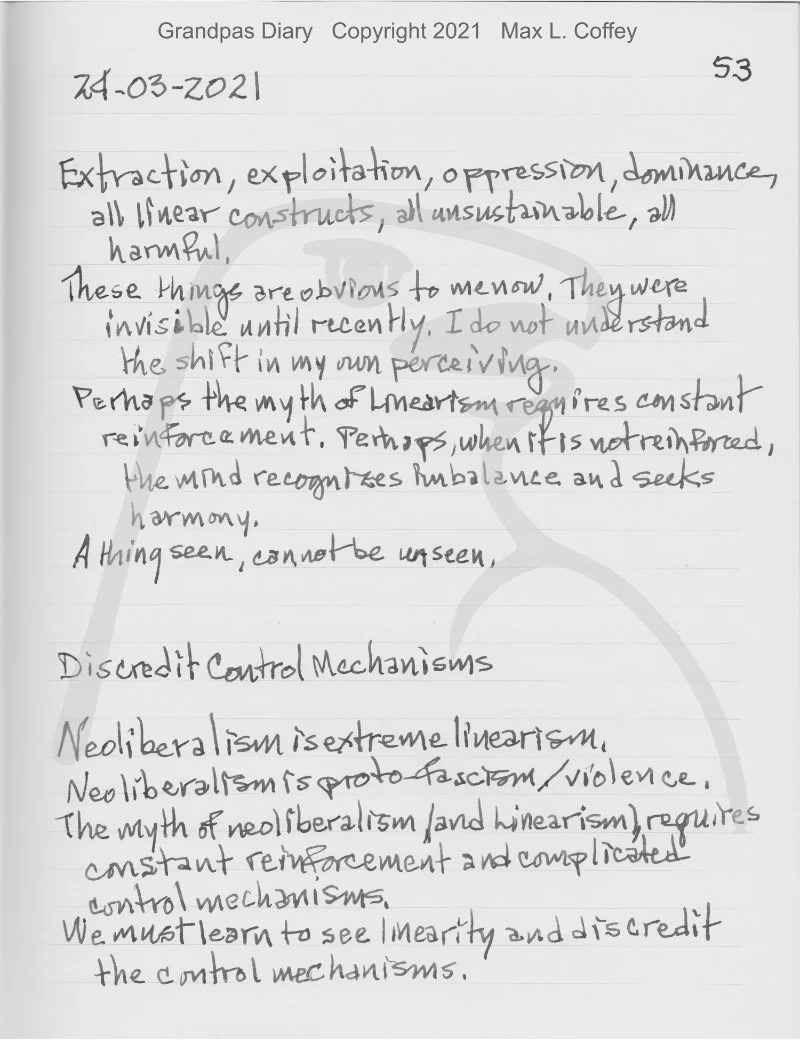 Grandpas Diary Copyright 2021 Max L. Coffey
53
24-03-2021
Extraction, exploitation, oppression, dominance,
all linear constructs, all unsustainable, all
harmful.
These things are obvious to me now. They were
invisible until recently. I do not understand
the shift in my own perceiving.
Perhaps the myth of Linearism requires constant
reinforcement. Perhaps, when it is not reinforced,
the mind recognizes imbalance and seeks
harmony.
A thing seen, cannot be unseen.
Discredit Control Mechanisms
Neoliberalism is extreme linearism.
Neoliberalism is proto-fascism/violence.
The myth of neoliberalism (and Linearism), requires
constant reinforcement and complicated
control mechanisms.
We must learn to see linearity and discredit
the control mechanisms.